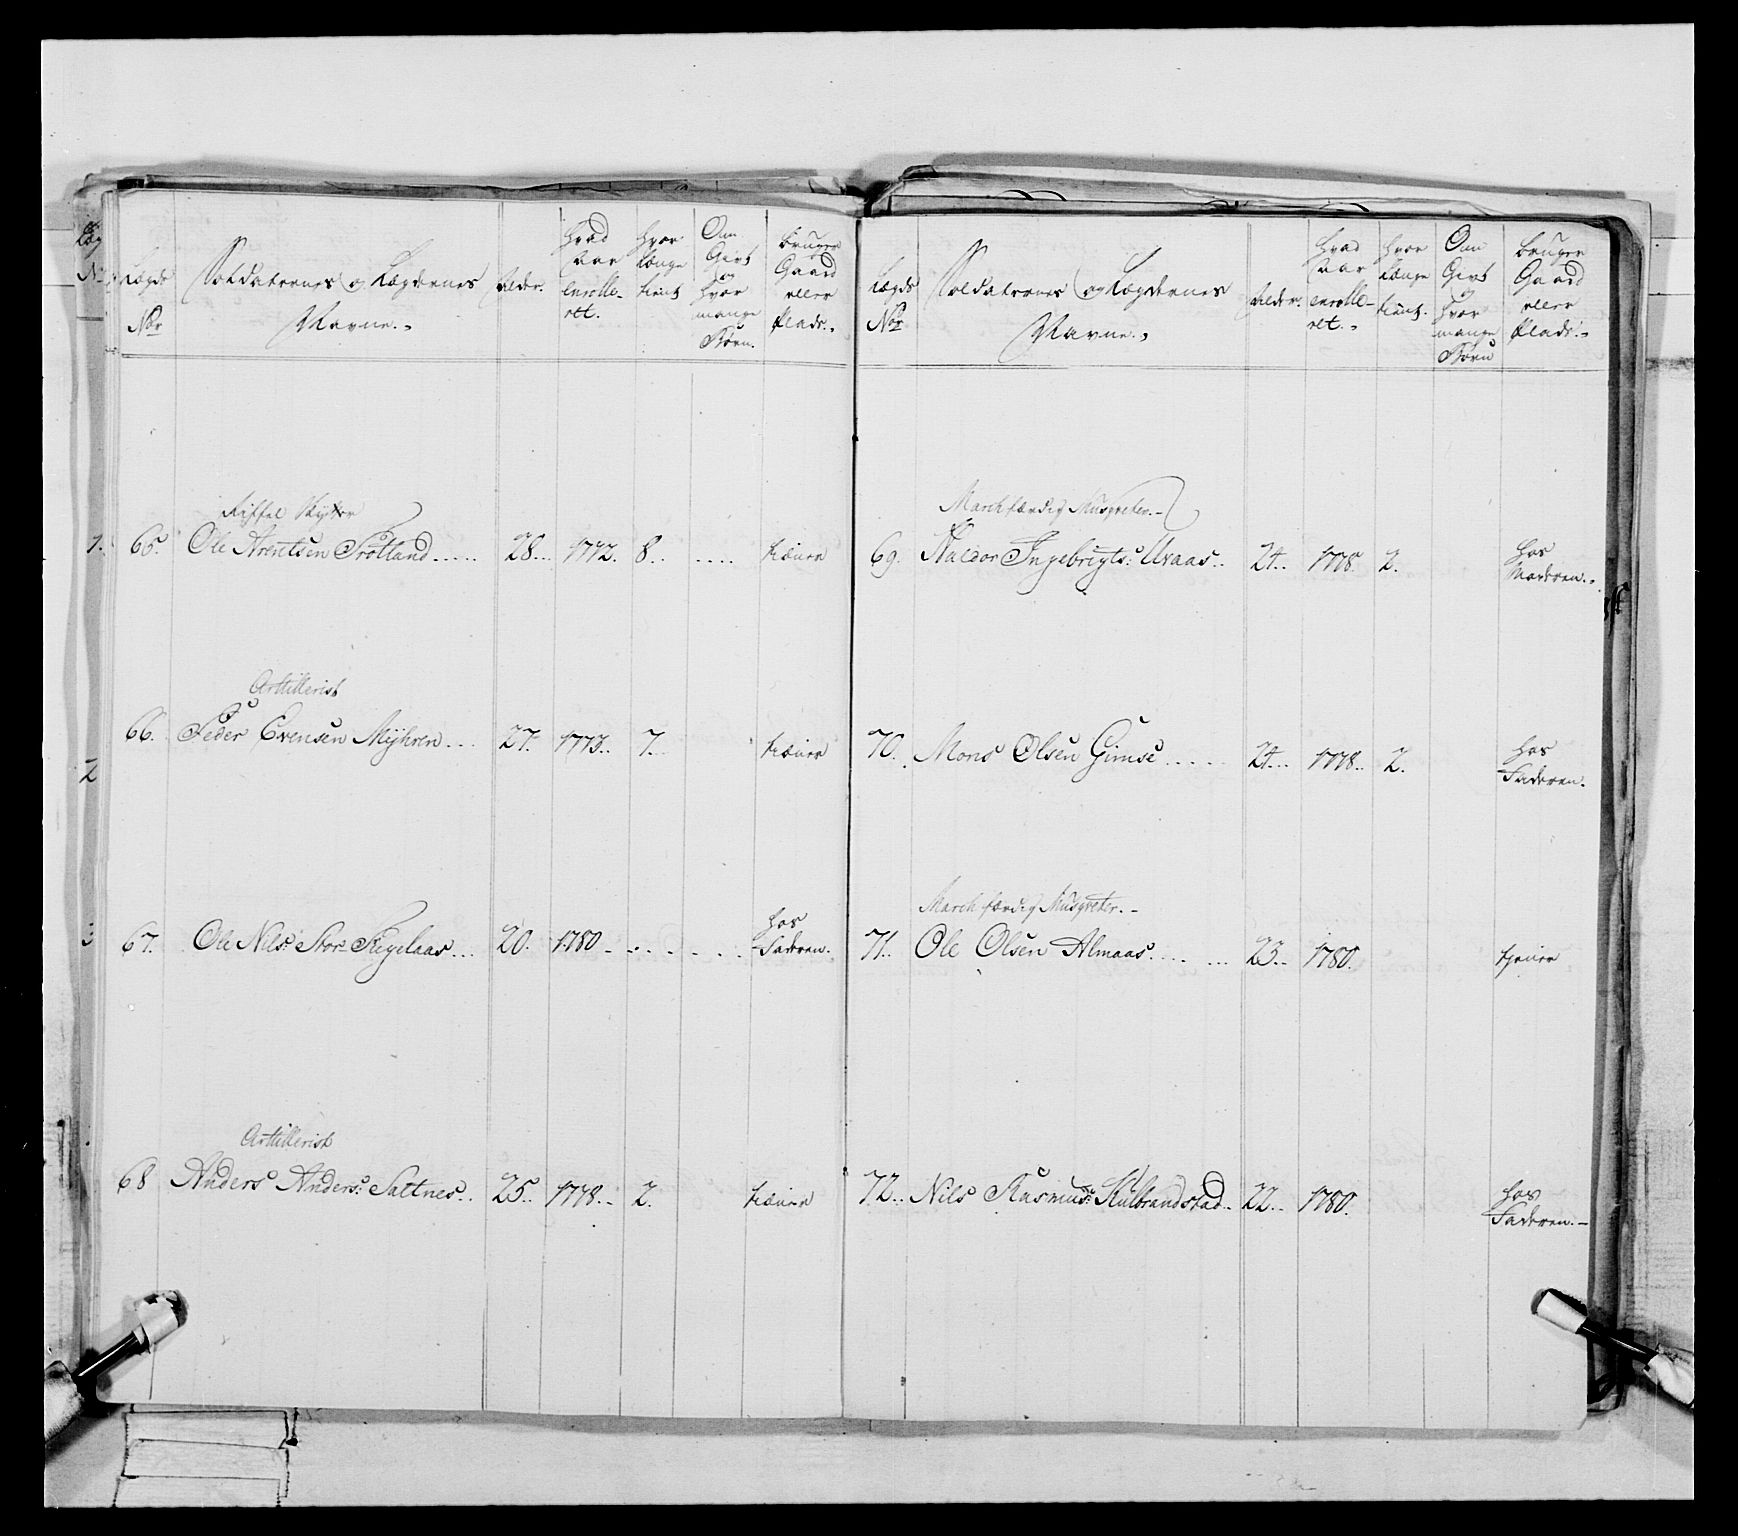 Lægds
No
Soldaternes og Lægdernes
Navne.
Alder.
hvad
Aar
enrolle-
ret.
hvor
Længe
tient
Om
Givt
og
hvor
mange
Børn.
bruger
Gaard
eller
Plads.
Riffel Skytter
65. Ole Arentsen Frotland..... 28... 1772. 8... .... tiæner
Artillerist
66. Peder Evensen Mÿhren... 27. 1773.. 7.. tiæner
67. Ole Nils: Stor- Fleyelaas... 20. 1780 - ......
hos
Faderen.
Artillerist
68 Anders Anders: Saltnes.. 25.. 1778.. 2. tiæner
Lægds
No
Soldaternes og Lægdernes
Navne.
Alder.
hvad
Aar
enrolle-
ret.
hvor
Længe
tient.
Om
Givt
og
hvor
mange
Børn
bruger
Gaard
eller
Plads.
Marchfærdig Musqveter.-
69. Haldor Ingebrigts: Uvaas.. 24.. 1778. 2.
hos
Moderen.
70. Mons Olsen Gimse..... 24... 1778.. 2.
hos
Faderen.
Marchfærdig Musqveter.-
71.. Ole Olsen Almaas...... 23.. 1780. tjener
72.. Nils Rasmus: Hulbrandstad.. 22.. 1780.
hos
Faderen.-
1.
2
3